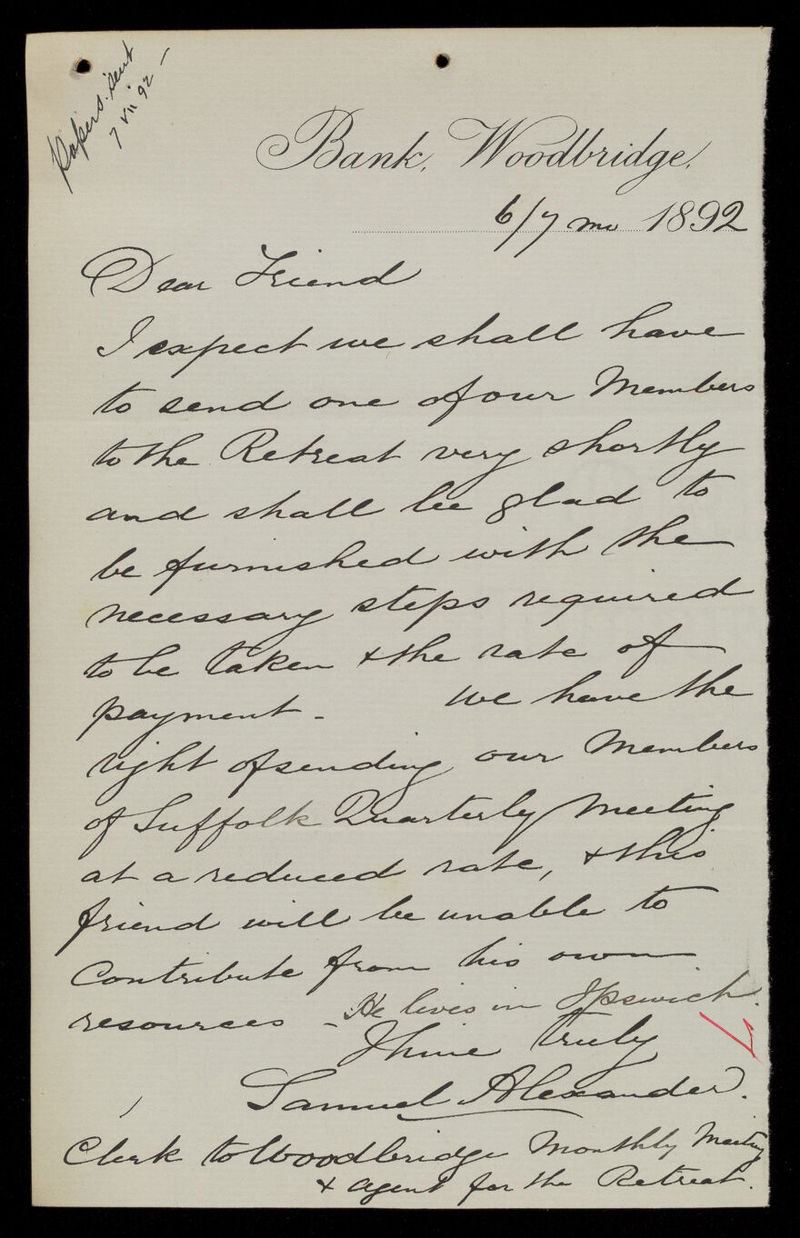 Papers sent
7 vii 92 –
Bank, Woodbridge,
6/7 mo 1892
Dear Friend
I expect we shall have
to send one of our Members
to the Retreat very shortly
and shall be glad to
be furnished with the
necessary steps required
to be taken & the rate of
payment - we have the
right of sending our Members
of Suffolk Quarterly Meeting
at a reduced rate, & this
friend will be unable to
contribute from his own
resources - He lives in Ipswich.
Thine truly
Samuel Alexander.
Clerk to Woodbridge Monthly Meeting
& agent for the Retreat.